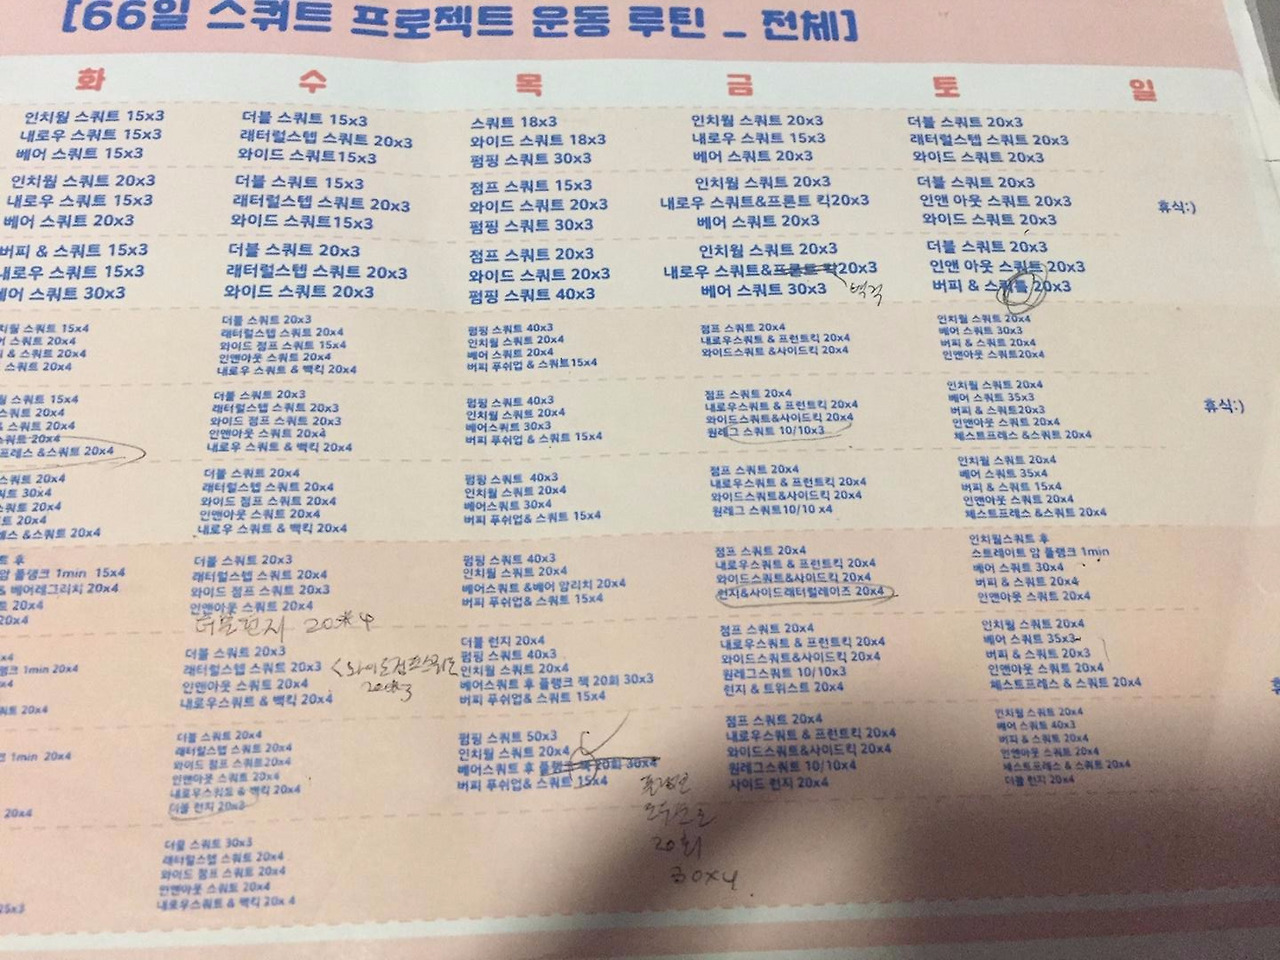 [66일 스쿼트 프로젝트 운동 루틴 _ 전체]
화 수 목 금 토 일
인치웜 스쿼트 15x3
내로우 스쿼트 15x3
베어 스쿼트 15x3
더블 스쿼트 15x3
래터럴스텝 스쿼트 20x3
와이드 스쿼트15x3
스쿼트 18x3
와이드 스쿼트 18x3
펌핑 스쿼트 30x3
인치웜 스쿼트 20x3
내로우 스쿼트 15x3
베어 스쿼트 20x3
더블 스쿼트 20x3
래터럴스텝 스쿼트 20x3
와이드 스쿼트 20x3
인치웜 스쿼트 20x3
내로우 스쿼트 15x3
베어 스쿼트 20x3
더블 스쿼트 15x3
래터럴스텝 스쿼트 20x3
와이드 스쿼트15x3
점프 스쿼트 15x3
와이드 스쿼트 20x3
펌핑 스쿼트 30x3
인치웜 스쿼트 20x3
내로우 스쿼트&프론트 킥20x3
베어 스쿼트 20x3
더블 스쿼트 20x3
인앤 아웃 스쿼트 20x3
와이드 스쿼트 20x3
휴식:)
버피 & 스쿼트 15x3
내로우 스쿼트 15x3
베어 스쿼트 30x3
더블 스쿼트 20x3
래터럴스텝 스쿼트 20x3
와이드 스쿼트 20x3
점프 스쿼트 20x3
와이드 스쿼트 20x3
펌핑 스쿼트 40x3
인치웜 스쿼트 20x3
내로우 스쿼트&프론트 킥20x3
베어 스쿼트 30x3
백킥
더블 스쿼트 20x3
인앤 아웃 스쿼트 20x3
버피 & 스쿼트 20x3
스쿼트 15x4
스쿼트 20x4
& 스쿼트 20x4
스쿼트 20x4
더블 스쿼트 20x3
래터럴스텝 스쿼트 20x4
와이드 점프 스쿼트 15x4
인앤아웃 스쿼트 20x4
내로우 스쿼트 & 백킥 20x4
펌핑 스쿼트 40x3
인치웜 스쿼트 20x4
베어 스쿼트 20x4
버피 푸쉬업 & 스쿼트15x4
점프 스쿼트 20x4
내로우스쿼트 & 프런트킥 20x4
와이드스쿼트&사이드킥 20x4
인치웜 스쿼트 20x4
베어 스쿼트 30x3
버피 & 스쿼트 20x4
인앤아웃 스쿼트20x4
스쿼트 15x4
스쿼트 20x4
& 스쿼트 20x4
스쿼트 20x4
프레스 &스쿼트 20x4
더블 스쿼트 20x3
래터럴스텝 스쿼트 20x3
와이드 점프 스쿼트 20x3
인앤아웃 스쿼트 20x4
내로우 스쿼트 & 백킥 20x4
펌핑 스쿼트 40x3
인치웜 스쿼트 20x4
베어스쿼트 30x3
버피 푸쉬업 & 스쿼트 15x4
점프 스쿼트 20x4
내로우스쿼트 & 프런트킥 20x4
와이드스쿼트&사이드킥 20x4
원레그 스쿼트 10/10x3
인치웜 스쿼트 20x4
베어 스쿼트 35x3
버피 & 스쿼트20x3
인앤아웃 스쿼트 20x4
체스트프레스 &스쿼트 20x4
휴식:)
스쿼트 20x4
스쿼트 30x4
20x4
20x4
&스쿼트 20x4
더블 스쿼트 20x4
래터럴스텝 스쿼트 20x4
와이드 점프 스쿼트 20x4
인앤아웃 스쿼트 20x4
내로우 스쿼트 & 백킥 20x4
펌핑 스쿼트 40x3
인치웜 스쿼트 20x4
베어스쿼트 30x4
버피 푸쉬업& 스쿼트 15x4
점프 스쿼트 20x4
내로우스쿼트 & 프런트킥 20x4
와이드스쿼트&사이드킥 20x4
원레그 스쿼트10/10 x4
인치웜 스쿼트 20x4
베어 스쿼트 35x4
버피 & 스쿼트 15x4
인앤아웃 스쿼트 20x4
체스트프레스 &스쿼트 20x4
후
암 플랭크 1min 15x4
& 베어레그리치 20x4
20x4
20x4
더블 스쿼트 20x3
래터럴스텝 스쿼트 20x4
와이드 점프 스쿼트 20x3
인앤아웃 스쿼트 20x4
더블런지 20*4
펌핑 스쿼트 40x3
인치웜 스쿼트 20x4
베어스쿼트 &베어 암리치 20x4
버피 푸쉬업& 스쿼트 15x4
점프 스쿼트 20x4
내로우스쿼트 & 프런트킥 20x4
와이드스쿼트&사이드킥 20x4
런지&사이드래터럴레이즈 20x4
인치웜스쿼트 후
스트레이트 암 플랭크 1min
베어 스쿼트 30x4
버피 & 스쿼트 20x4
인앤아웃 스쿼트 20x4
1min 20x4
20x4
더블 스쿼트 20x3
래터럴스텝 스쿼트 20x3
인앤아웃 스쿼트 20x4
내로우스쿼트 & 백킥 20x4
<와이드점프스쿼트
20*3
더블 런지 20x4
펌핑 스쿼트 40x3
인치웜 스쿼트 20x4
베어스쿼트 후 플랭크 잭 20회 30x3
버피 푸쉬업& 스쿼트 15x4
점프 스쿼트 20x4
내로우스쿼트 & 프런트킥 20x4
와이드스쿼트&사이드킥 20x4
원레그스쿼트 10/10x3
런지 & 트위스트 20x4
인치웜 스쿼트 20x4
베어 스쿼트 35x3
버피 & 스쿼트 20x3
인앤아웃 스쿼트 20x4
체스트프레스 & 스쿼트 20x4
1min 20x4
20x4
더블 스쿼트 20x4
래터럴스텝 스쿼트 20x4
와이드 점프 스쿼트 20x4
인앤아웃 스쿼트 20x4
내로우스쿼트 & 백킥 20x4
더블 런지 20x3
펌핑 스쿼트 50x3
인치웜 스쿼트 20x4
베어스쿼트 후 플랭크 잭 20회 30x4
버피 푸쉬업& 스쿼트 15x4
20회
30x4
점프 스쿼트 20x4
내로우스쿼트 & 프런트킥 20x4
와이드스쿼트&사이드킥 20x4
원레그스쿼트 10/10x4
사이드 런지 20x4
인치웜 스쿼트 20x4
베어 스쿼트 40x3
버피 & 스쿼트 20x4
인앤아웃 스쿼트 20x4
체스트프레스 & 스쿼트 20x4
더블 런지 20x4
25x3
더블 스쿼트 30x3
래터럴스텝 스쿼트 20x4
와이드 점프 스쿼트 20x4
인앤아웃 스쿼트 20x4
내로우스쿼트 & 백킥 20x 4